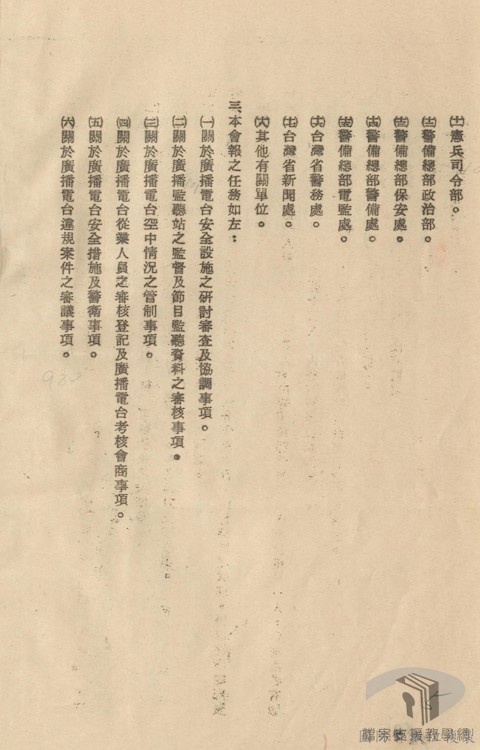 ㈩憲兵司令部。
警備總部政治部。
警備總部保安處。
警備總部警備處。
警備總部電監處。
台灣省警務處。
台灣省新聞處。
其他有關單位。
三、本會報之任務如左：
㈠關於廣播電台安全設施之研討審查及協調事項。
㈡關於廣播監聽站之監督及節目監聽資料之審核事項。
㈢關於廣播電台空中情況之管制事項。
㈣關於廣播電台從業人員之審核登記及廣播電台考核會商事項。
㈤關於廣播電台安全措施及警衛事項。
㈥關於廣播電台違規案件之審議事項。